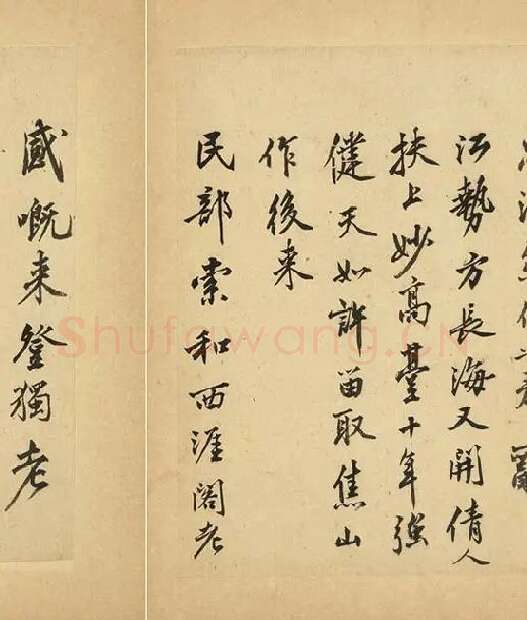 江勢方長海又開倩人
扶上妙高臺十年強
健天如許留取焦山
作後来
民部索和西涯阁老
感嘅来登獨老
Shufawang.CN